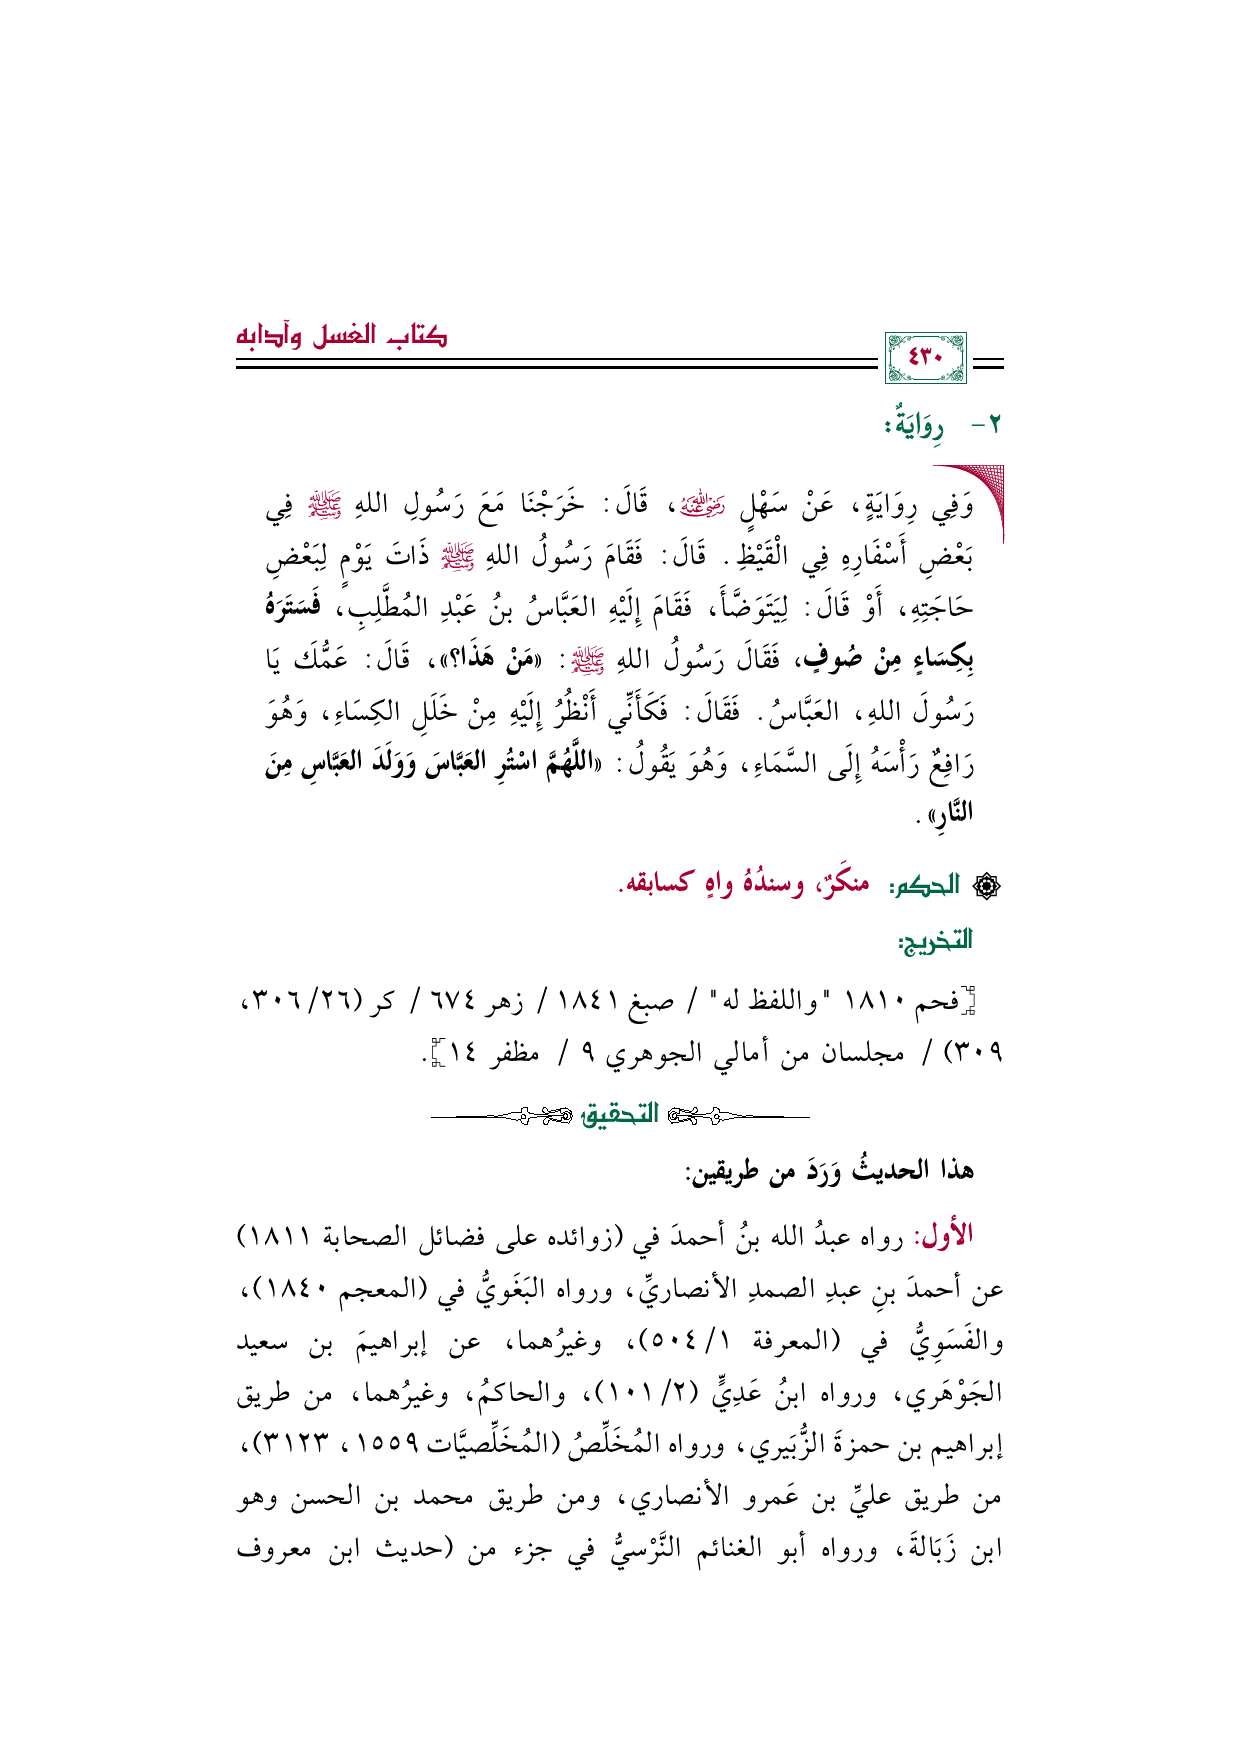 كتاب الغسل وآدابه
٤٣٠
٢- رِوَايَةٌ:
وَفِي رِوَايَةٍ، عَنْ سَهْلٍ رضي الله عنه، قَالَ: خَرَجْنَا مَعَ رَسُولِ اللهِ ﷺ فِي
بَعْضِ أَسْفَارِهِ فِي الْقَيْظِ. قَالَ: فَقَامَ رَسُولُ اللهِ ﷺ ذَاتَ يَوْمٍ لِبَعْضِ
حَاجَتِهِ، أَوْ قَالَ: لِيَتَوَضَّأَ، فَقَامَ إِلَيْهِ العَبَّاسُ بنُ عَبْدِ المُطَّلِبِ، فَسَتَرَهُ
بِكِسَاءٍ مِنْ صُوفٍ، فَقَالَ رَسُولُ اللهِ ﷺ: «مَنْ هَذَا؟»، قَالَ: عَمُّكَ يَا
رَسُولَ اللهِ، العَبَّاسُ. فَقَالَ: فَكَأَنِّي أَنْظُرُ إِلَيْهِ مِنْ خَلَلِ الكِسَاءِ، وَهُوَ
رَافِعٌ رَأْسَهُ إِلَى السَّمَاءِ، وَهُوَ يَقُولُ: «اللَّهُمَّ اسْتُرِ العَبَّاسَ وَوَلَدَ العَبَّاسِ مِنَ
النَّارِ».
الحكم: منكَرٌ، وسندُهُ واهٍ كسابقه.
التخريج:
[فحم ١٨١٠ "واللفظ له" / صبغ ١٨٤١ / زهر ٦٧٤ / كر (٢٦/ ٣٠٦،
٣٠٩) / مجلسان من أمالي الجوهري ٩ / مظفر ١٤].
التحقيق
هذا الحديثُ وَرَدَ من طريقين:
الأول: رواه عبدُ الله بنُ أحمدَ في (زوائده على فضائل الصحابة ١٨١١)
عن أحمدَ بنِ عبدِ الصمدِ الأنصاريِّ، ورواه البَغَويُّ في (المعجم ١٨٤٠)،
والفَسَوِيُّ في (المعرفة ١/ ٥٠٤)، وغيرُهما، عن إبراهيمَ بن سعيد
الجَوْهَري، ورواه ابنُ عَدِيٍّ (٢/ ١٠١)، والحاكمُ، وغيرُهما، من طريق
إبراهيم بن حمزةَ الزُّبَيري، ورواه المُخَلِّصُ (المُخَلِّصيَّات ١٥٥٩، ٣١٢٣)،
من طريق عليِّ بن عَمرو الأنصاري، ومن طريق محمد بن الحسن وهو
ابن زَبَالةَ، ورواه أبو الغنائم النَّرْسيُّ في جزء من (حديث ابن معروف